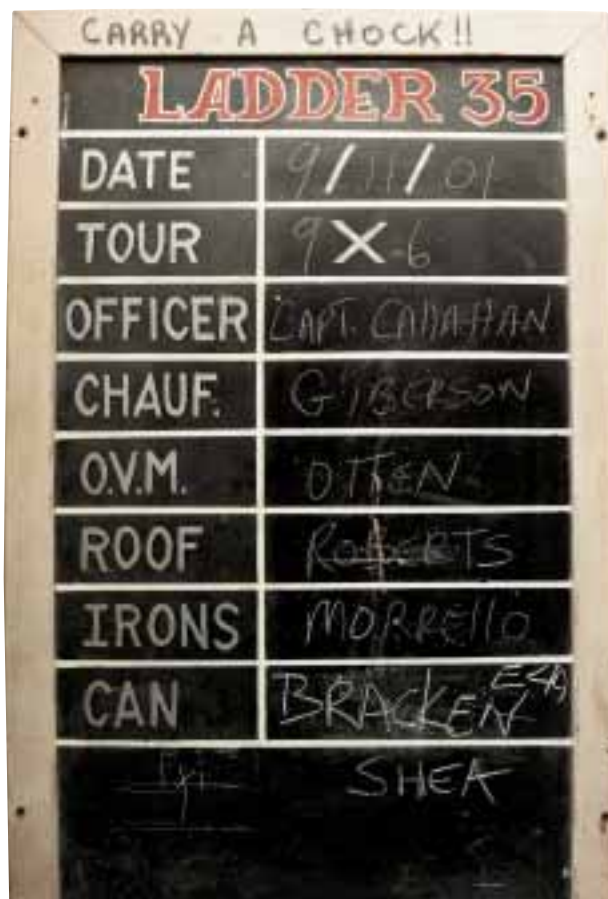 CARRY A CHOCK!!
LADDER 35
DATE 9/11/01
TOUR 9X6
OFFICER CAPT. CALLAHAN
CHAUF. GIBERSON
O.V.M. OTTEN
ROOF ROBERTS
IRONS MORRELLO
CAN BRACKEN
SHEA